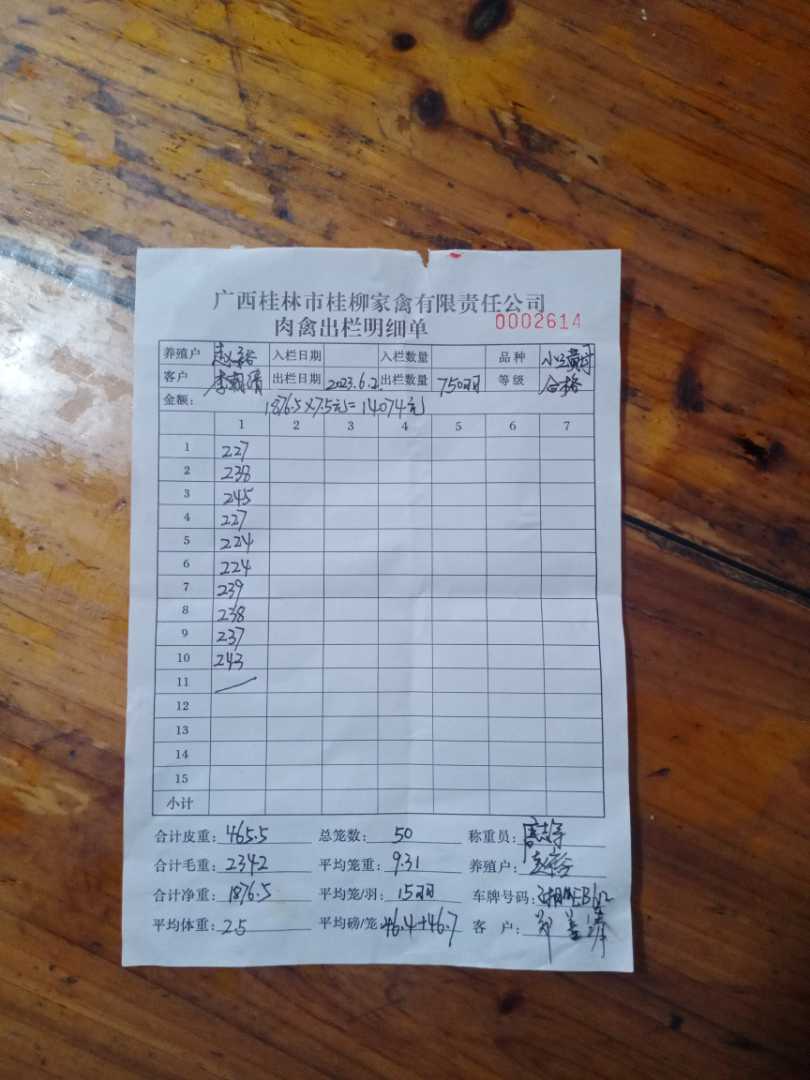 广西桂林市桂柳家禽有限责任公司
肉禽出栏明细单 0002614
养殖户 入栏日期 入栏数量 品种
客户 出栏日期 2023.6.2. 出栏数量 750羽 等级 合格
金额: 1876.5×7.5元=14074元
1 2 3 4 5 6 7
1 227
2 238
3 245
4 227
5 224
6 224
7 239
8 238
9 237
10 243
11
12
13
14
15
小计
合计皮重: 465.5 总笼数: 50 称重员:
合计毛重: 2342 平均笼重: 9.31 养殖户:
合计净重: 1876.5 平均笼/羽: 15羽 车牌号码:
平均体重: 2.5 平均磅/笼 46.4+46.7 客 户: